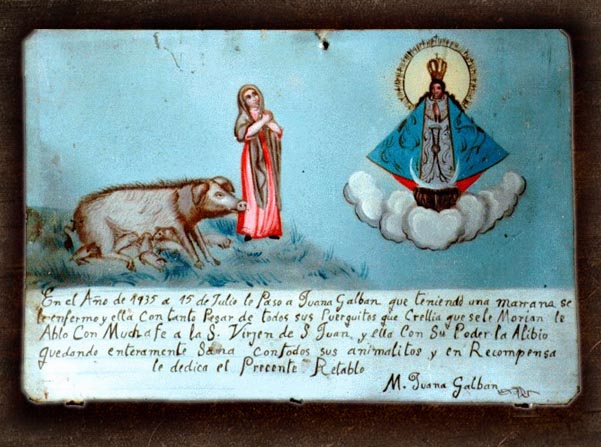 En el Año de 1935 a 15 de Julio le Paso a Juana Galban que teniendo una marrana se
le enfermo y ella con tanto Pezar de todos sus Puerquitos que Crellia que sele Morian le
Ablo Con Mucha fe a la S. Virjen de S Juan, y ella Con Su Poder la Alibio
quedando enteramente Sana con todos sus animalitos y en Recompensa
le dedica el Precente Retablo
M. Juana Galban